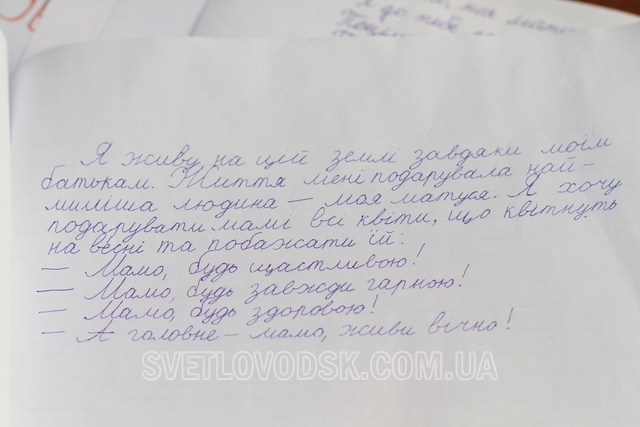 я до тебе
Я живу на цій землі завдяки моїм
батькам. Життя мені подарувала най-
миліша людина – моя матуся. Я хочу
подарувати мамі всі квіти, що квітнуть
на весні та побажати їй:
– Мамо, будь щастливою!
– Мамо, будь завжди гарною!
– Мамо, будь здоровою!
– А головне – мамо, живи вічно!
SVETLOVODSK.COM.UA